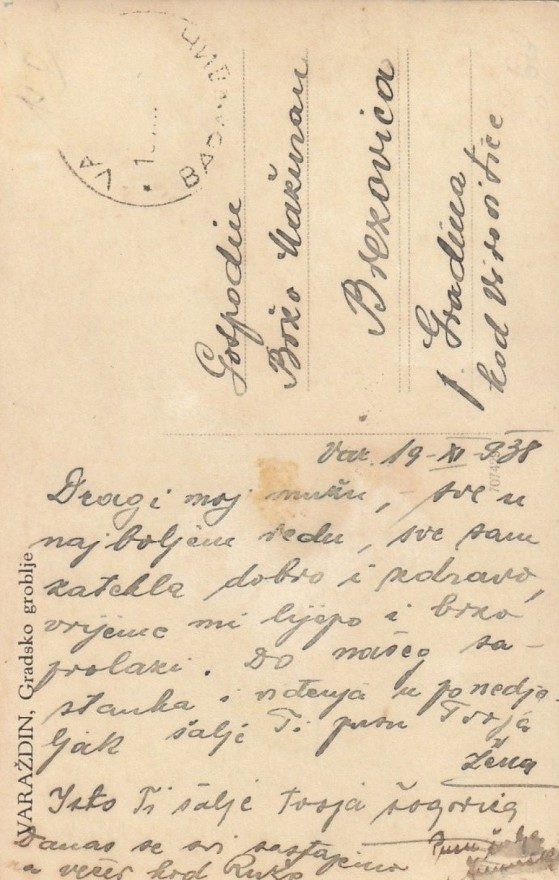 Gospodin
Božo
Brezovica
Gradina
kod Virovitice
Var. 19-XI-938
Dragi moj mužu, - sve u
najboljem redu, sve sam
zatekla dobro i zdravo,
vrijeme mi lijepo i brzo
prolazi. Do našeg sa-
stanka i viđenja u ponedje
ljak šalje Ti pusu Tvoja
Žena
Isto Ti šalje tvoja šogorica
Danas se svi sastajemo
na večer kod Ruže
VARAŽDIN, Gradsko groblje